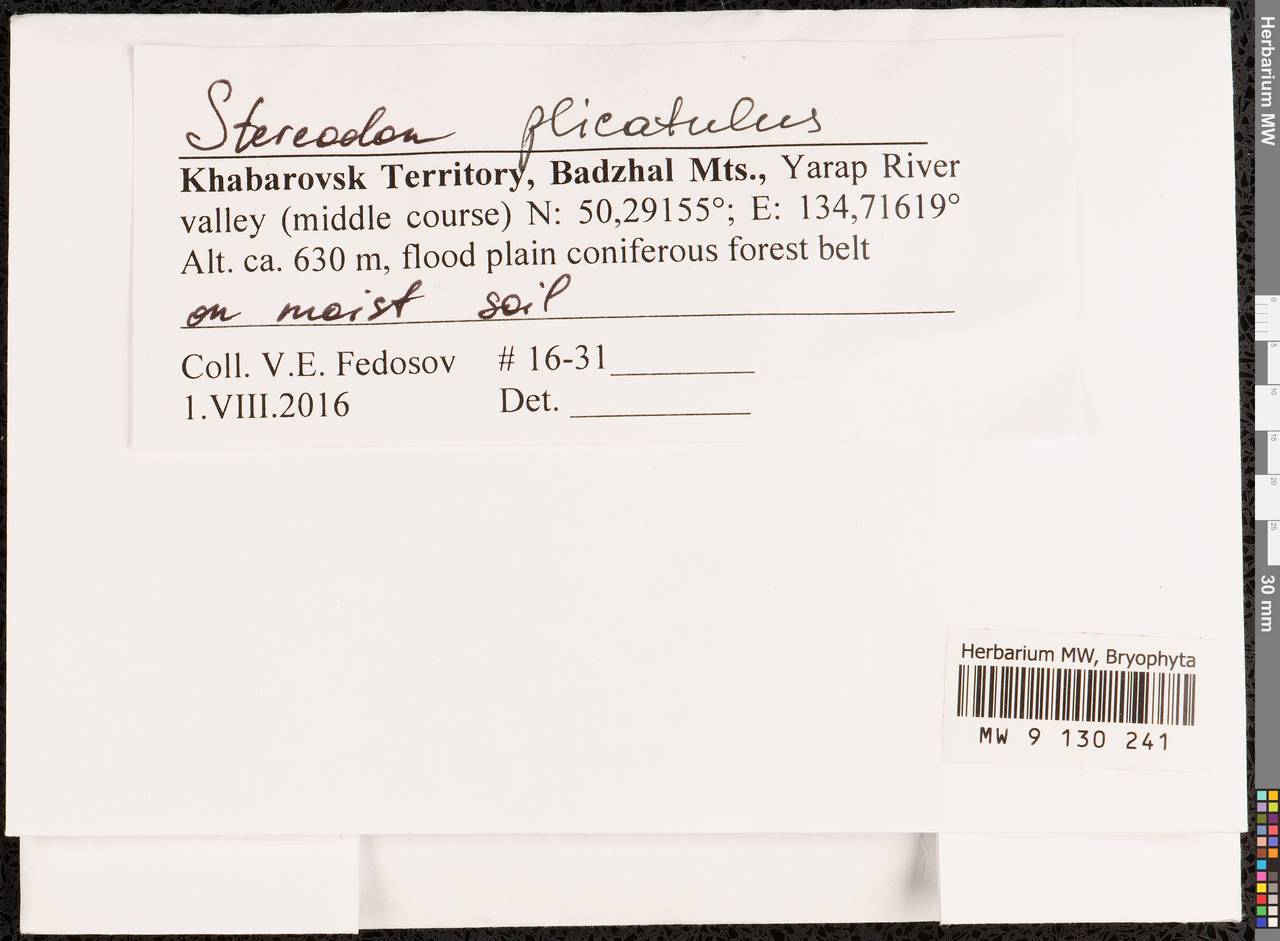 Stereodon plicatulus
Khabarovsk Territory, Badzhal Mts., Yarap River
valley (middle course) N: 50,29155°; E: 134,71619°
Alt. ca. 630 m, flood plain coniferous forest belt
on moist soil
Coll. V.E. Fedosov # 16-31
1.VIII.2016 Det.
Herbarium MW, Bryophyta
MW 9 130 241
Herbarium MW
0
5
10
15
20
25
30 mm